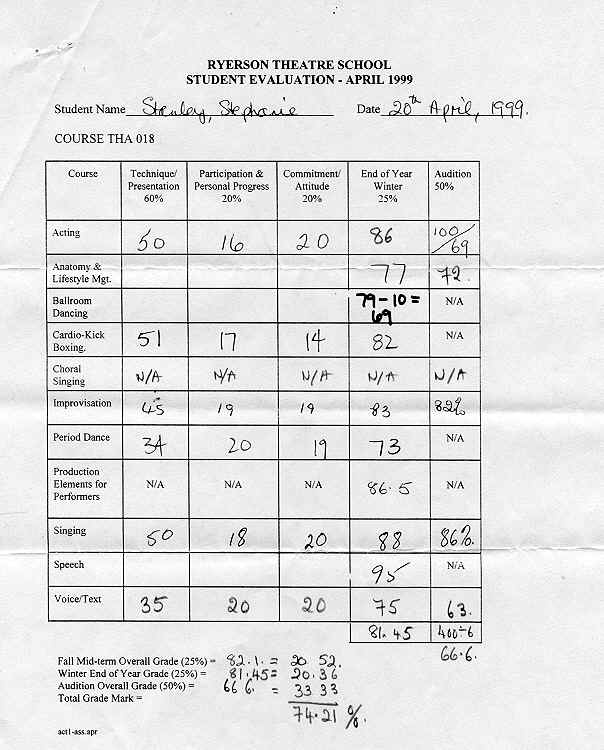 RYERSON THEATRE SCHOOL
STUDENT EVALUATION - APRIL 1999
Student Name Stanley, Stephanie Date 20th April, 1999.
COURSE THA 018
Course Technique/ Participation & Commitment/ End of Year Audition
Presentation Personal Progress Attitude Winter 50%
60% 20% 20% 25%
Acting 50 16 20 86 100/69
Anatomy & Lifestyle Mgt. 77 72.
Ballroom Dancing 79-10=69 N/A
Cardio-Kick Boxing. 51 17 14 82 N/A
Choral Singing N/A N/A N/A N/A N/A
Improvisation 45 19 19 83 82%
Period Dance 34 20 19 73 N/A
Production Elements for Performers N/A N/A N/A 86.5 N/A
Singing 50 18 20 88 86%.
Speech 95 N/A
Voice/Text 35 20 20 75 63.
81.45 400÷6
66.6.
Fall Mid-term Overall Grade (25%) = 82.1. = 20.52.
Winter End of Year Grade (25%) = 81.45= 20.36
Audition Overall Grade (50%) = 66 6. = 33 33
Total Grade Mark = 74.21 %.
act1-ass.apr